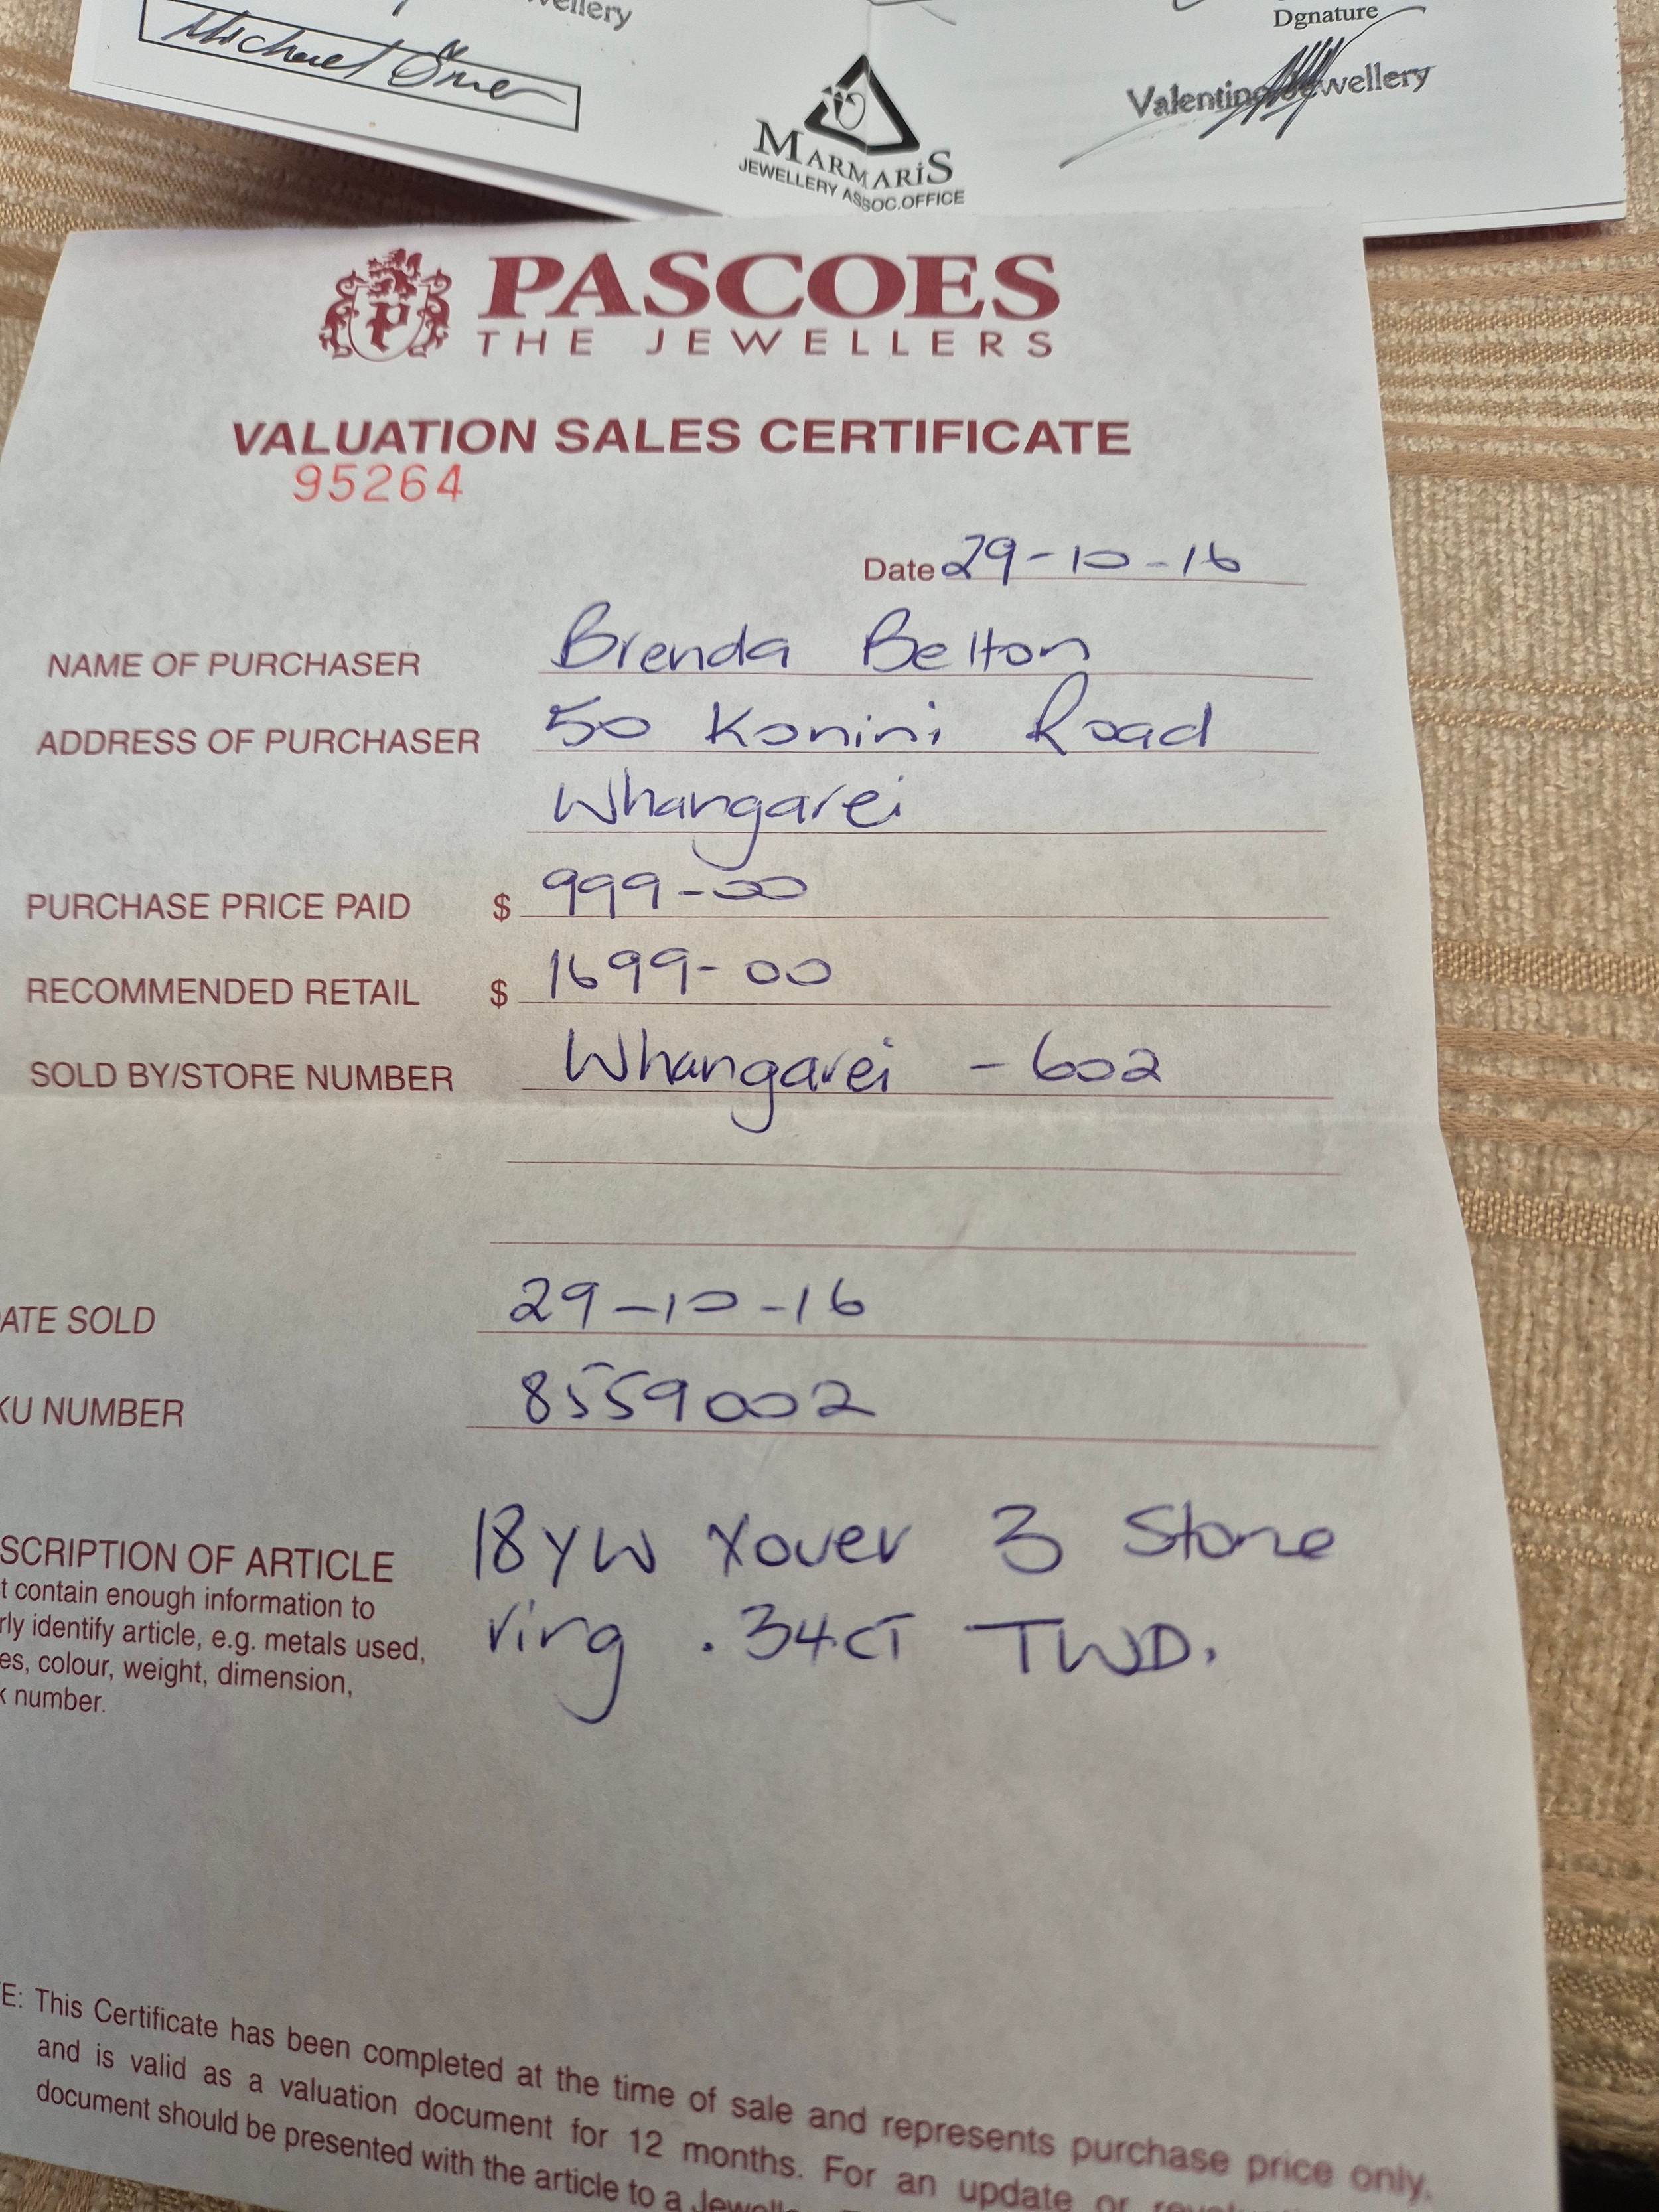 ellery
Dgnature
Michael Öner
Valentino Jewellery
MARMARİS
JEWELLERY ASSOC.OFFICE
P
PASCOES
THE JEWELLERS
VALUATION SALES CERTIFICATE
95264
Date 29-10-16
NAME OF PURCHASER Brenda Belton
ADDRESS OF PURCHASER 50 Konini Road
Whangarei
PURCHASE PRICE PAID $ 999-00
RECOMMENDED RETAIL $ 1699-00
SOLD BY/STORE NUMBER Whangarei - 602
ATE SOLD 29-10-16
KU NUMBER 8559002
SCRIPTION OF ARTICLE 18YW Xover 3 Stone
t contain enough information to
rly identify article, e.g. metals used, ring .34CT TWD.
es, colour, weight, dimension,
k number.
E: This Certificate has been completed at the time of sale and represents purchase price only,
and is valid as a valuation document for 12 months. For an update or
document should be presented with the article to a Jewell